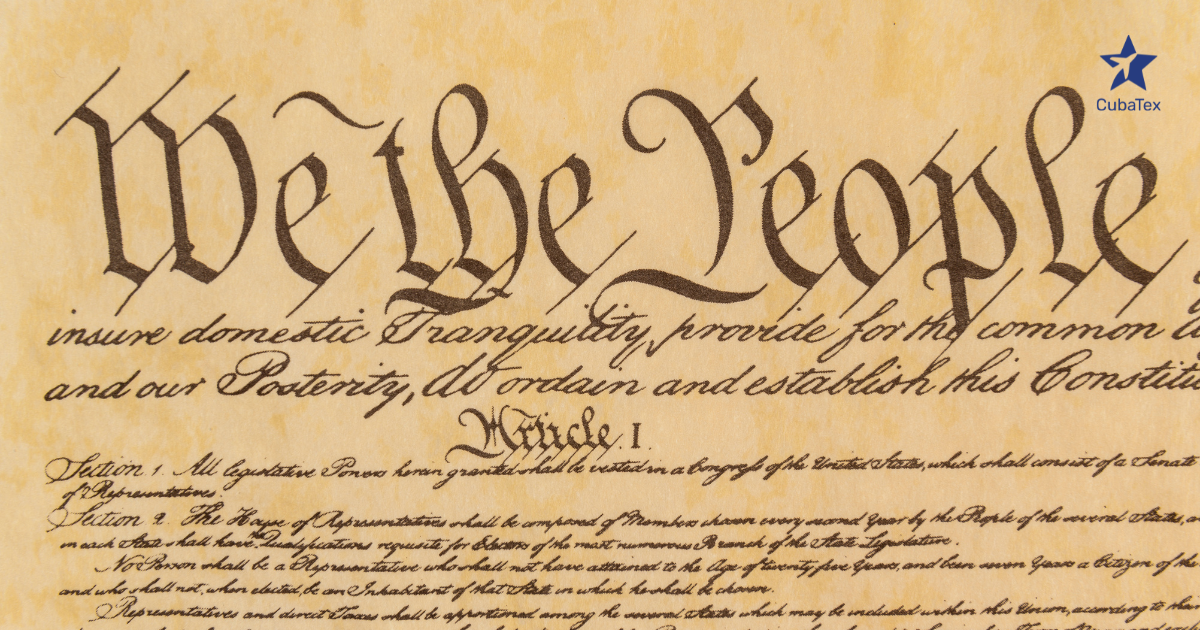 We the People
CubaTex
insure domestic Tranquility, provide for the common
and our Posterity, do ordain and establish this Constitu
Article I.
Section 1. All legislative Powers herein granted shall be vested in a Congress of the United States, which shall consist of a Senate
of Representatives.
Section 2. The House of Representatives shall be composed of Members chosen every second Year by the People of the several States,
in each State shall have the Qualifications requisite for Electors of the most numerous Branch of the State Legislature.
No Person shall be a Representative who shall not have attained to the Age of twenty five Years, and been seven Years a Citizen of the
and who shall not, when elected, be an Inhabitant of that State in which he shall be chosen.
Representatives and direct Taxes shall be apportioned among the several States which may be included within this Union, according to their